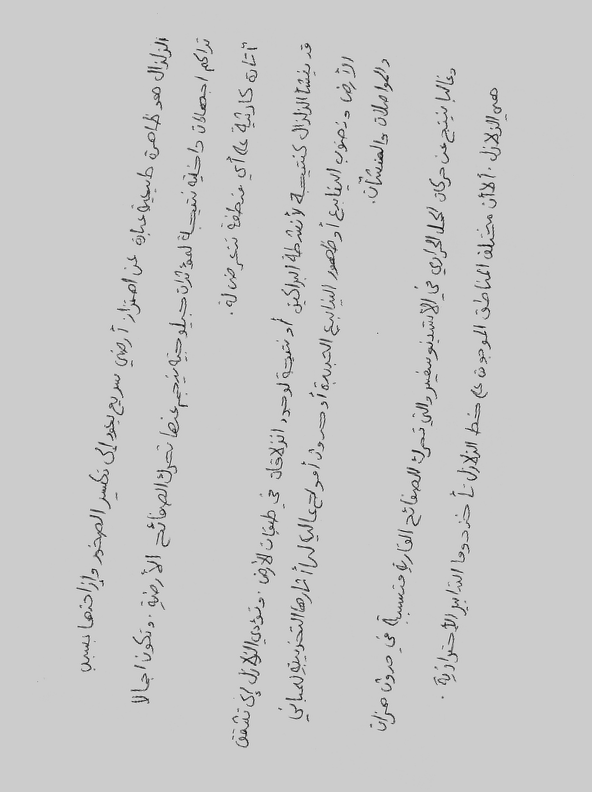 الزلزال هو ظاهرة طبيعية عبارة عن اهتزاز أرضي سريع يعود إلى تكسر الصخور وإزاحتها بسبب
تراكم اجهادات داخلية نتيجة لمؤثرات جيولوجية ينجم عنها تحرك الصفائح الأرضية. وتكون اجالا
آثاره كارثية على أي منطقة تتعرض له.
قد ينشأ الزلزال كنتيجة لأنشطة البراكين أو نتيجة لوجود انزلاقات في طبقات الأرض. وتؤدي الزلازل إلى تشقق
الأرض ونضوب الينابيع أو ظهور الينابيع الجديدة أو حدوث أمواج عالية كما آثارها التخريبية للمباني
والمواصلات والمنشآت.
وغالبا ينتج عن حركات الحمل الحراري في الأسثينوسفير والتي تحرك الصفائح القارية متسببة في حدوث هزات
هي الزلازل. ألأن مختلف المناطق الموجودة على خط الزلازل تأخذ دوما التدابير الأحترازية.